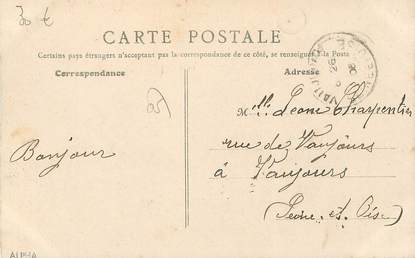 30 €
CARTE POSTALE
Certains pays étrangers n'acceptant pas la correspondance de ce côté, se renseigner à la Poste
Correspondance
Adresse
Bonjour
Mlle Leone Charpentier
rue de Vaujours
à Vaujours
(Seine-et-Oise)